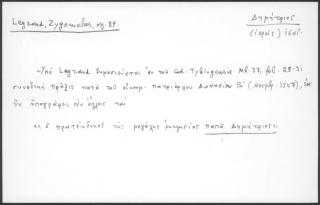 Legrand, Zygomalas, σχ. 89.
Δημήτριος
(ἱερεὺς) 16αι.
Ὑπὸ Legrand δημοσιεύεται ἐκ τοῦ Cod. Tybingensis Mb. 37, fol. 28-31
συνοδικὴ πρᾶξις κατὰ τοῦ οἰκουμ. πατριάρχου Διονυσίου Β΄ (1547), 
ἣν ὑπογράφει σὺν ἄλλοις καὶ
ὁ πρωτέκδικος τῆς μεγάλης ἐκκλησίας παπᾶ Δημήτριος